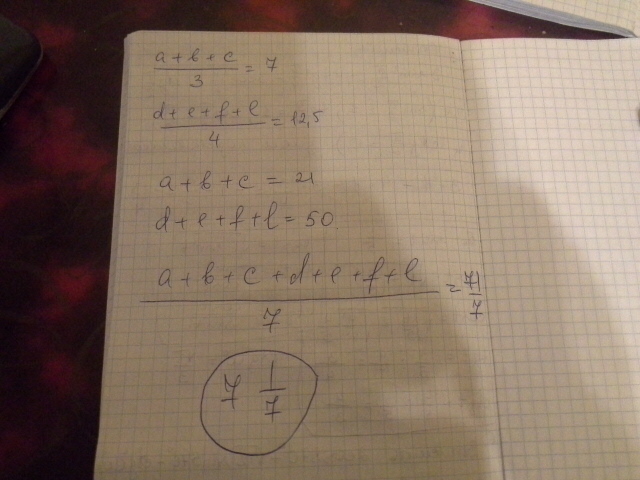 a+b+c/3 = 7
d+e+f+l/4 = 12,5
a+b+c = 21
d+e+f+l = 50
a+b+c+d+e+f+l/7 = 71/7
7 1/7